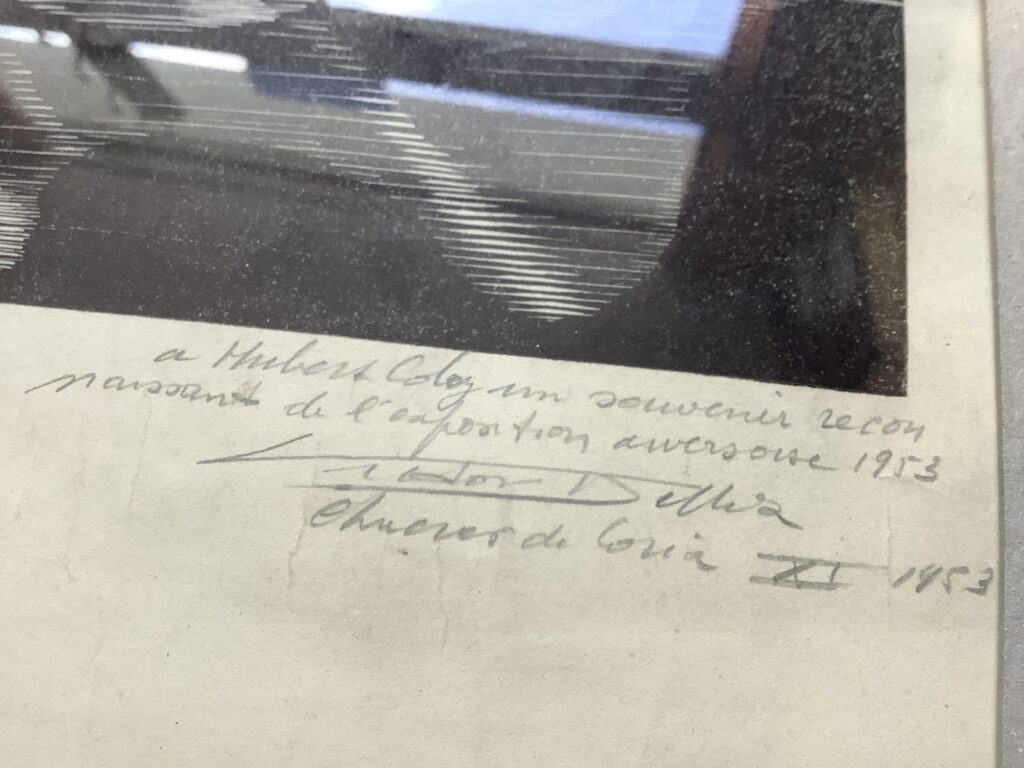 a Hubert Colay un souvenir recon
naissant de l'exposition anversoise 1953
Victor Delhez
Chacras de Coria XI 1953